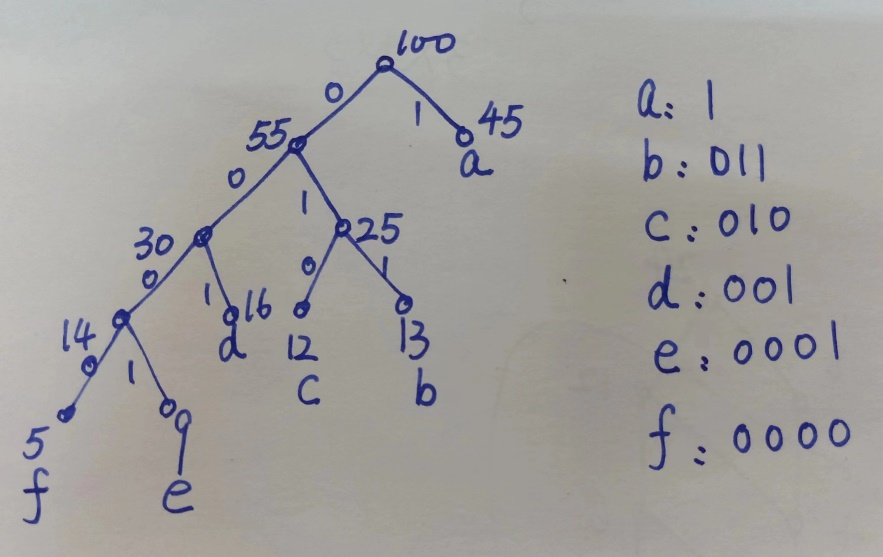 100
0 1
55 45
a
0 1
30 25
0 1 0 1
14 16 12 13
d c b
0 1
5 9
f e
a: 1
b: 011
c: 010
d: 001
e: 0001
f: 0000